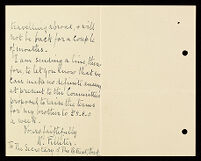 travelling abroad, & will
not be back for a couple
of months.
I am sending a line, there-
fore, to let you know that we
can make no definite answer
at present to the Committee's
proposal to raise the terms
for my brother to £3.3.0
a week.
Yours faithfully
The Secretary of the Retreat, York.